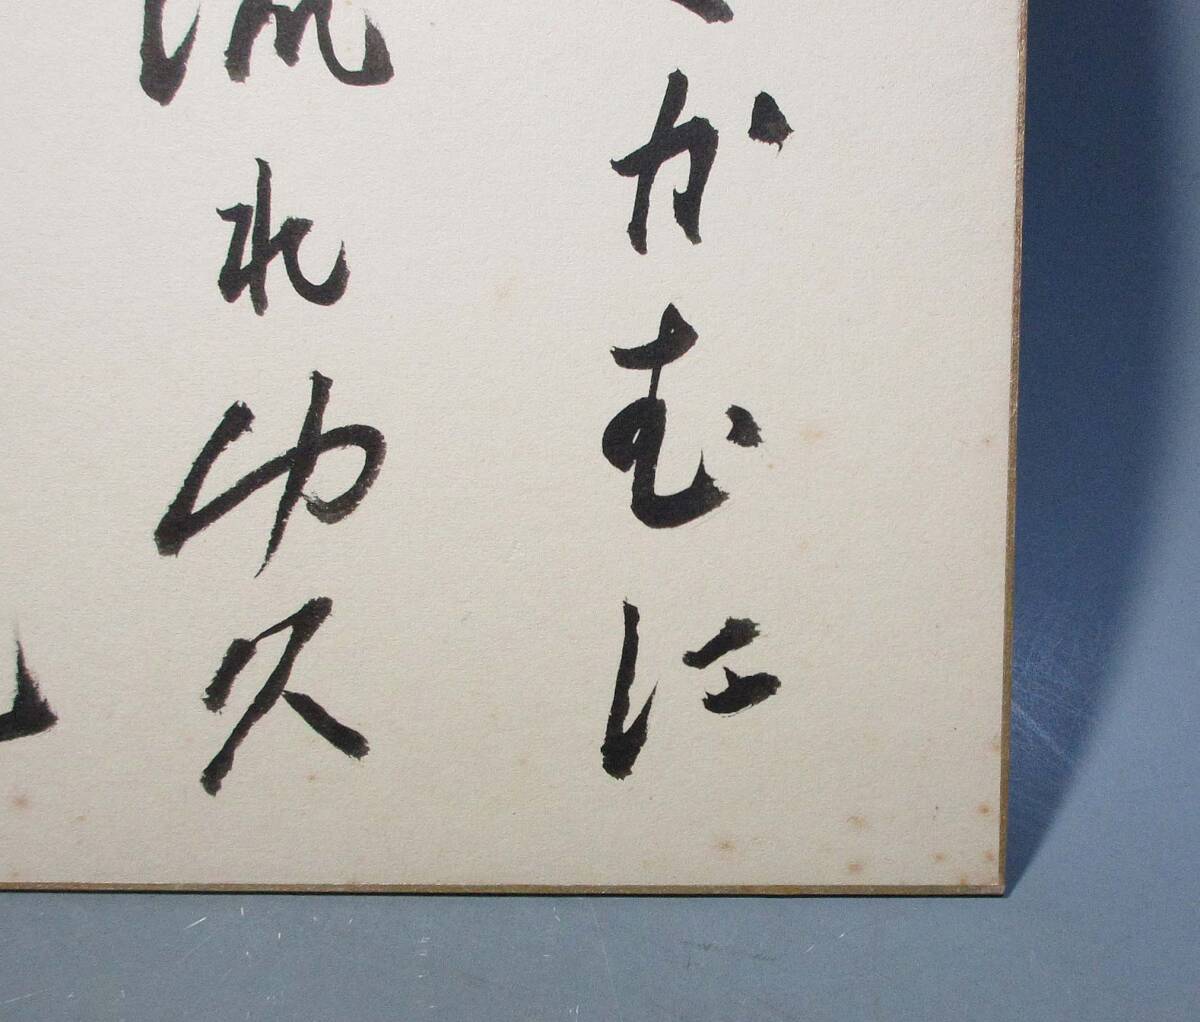 かむに
流れゆく